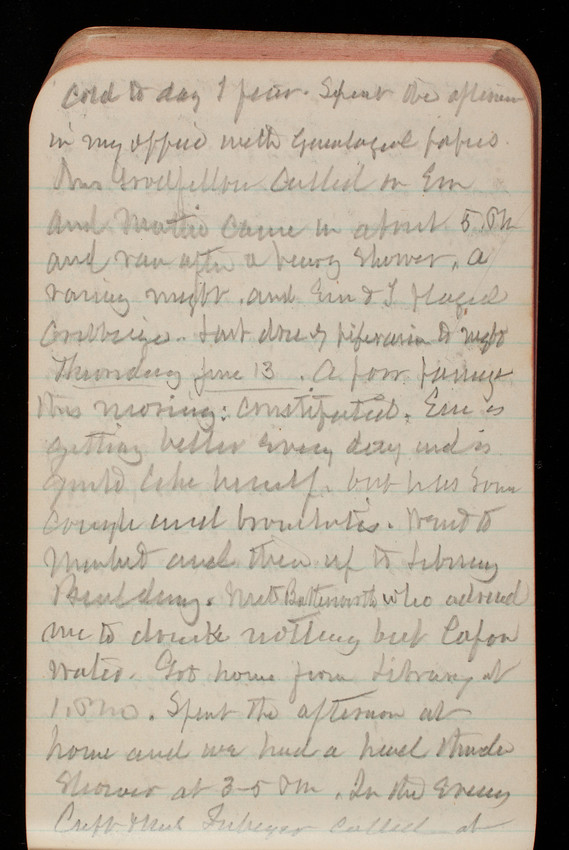 cold to day I fear. Spent the afternoon
in my office with Genealogical papers.
Mrs Goodfellow called on Em
and Mattie came in about 5. P.M
and ran after a heavy Shower. A
rainy night. and Em & I played
Cribbage. Last dose of piperazin to night
Thursday June 13. A poor passage
this morning: constipated. Em is
getting better every day and is
quite like herself. but has some
cough and bronchitis. Went to
Market and then up to Library
Building. Met Butterworth who advised
me to drink nothing but Capon
water. Got home from Library at
1. P.M. Spent the afternoon at
home and we had a hard thunder
Shower at 3-5 P.M. In the Evening
Capt & Mrs called at